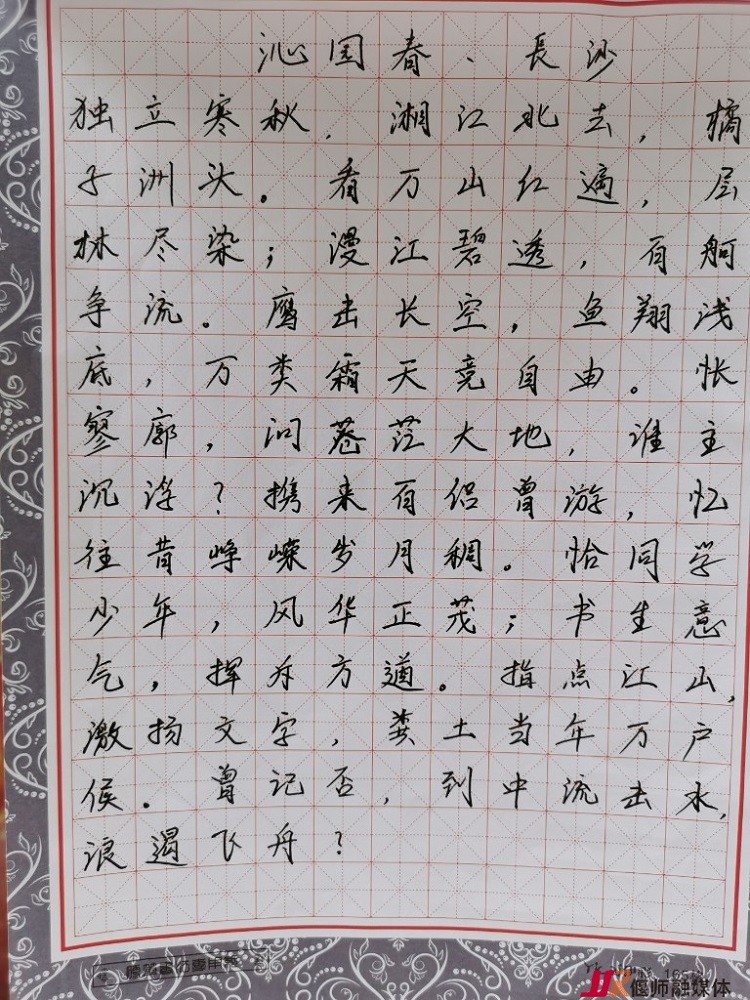 沁园春、長沙
独立寒秋，湘江北去，橘
子洲头。看万山红遍，层
林尽染；漫江碧透，百舸
争流。鹰击长空，鱼翔浅
底，万类霜天竞自由。怅
寥廓，问苍茫大地，谁主
沉浮？携来百侣曾游，忆
往昔峥嵘岁月稠。恰同学
少年，风华正茂；书生意
气，挥斥方遒。指点江山，
激扬文字，粪土当年万户
侯。曾记否，到中流击水，
浪遏飞舟？
偃师融媒体